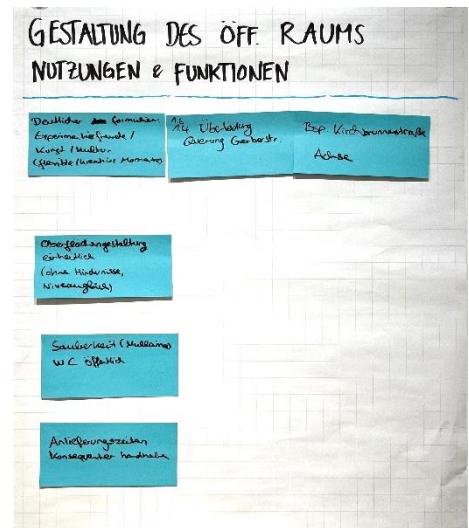 GESTALTUNG DES ÖFF. RAUMS
NUTZUNGEN & FUNKTIONEN
Deutlicher formulieren
Experimentierfreude /
Kunst / Kultur
(flexible / kreative Momente)
14 Überladung
Querung Gerberstr.
Bsp. Kirchbrunnenstraße
Achse
Oberflächengestaltung
einheitlich
(ohne Hindernisse,
Niveaugleich)
Sauberkeit (Mülleimer)
WC öffentlich
Anlieferungszeiten
konsequenter handhaben